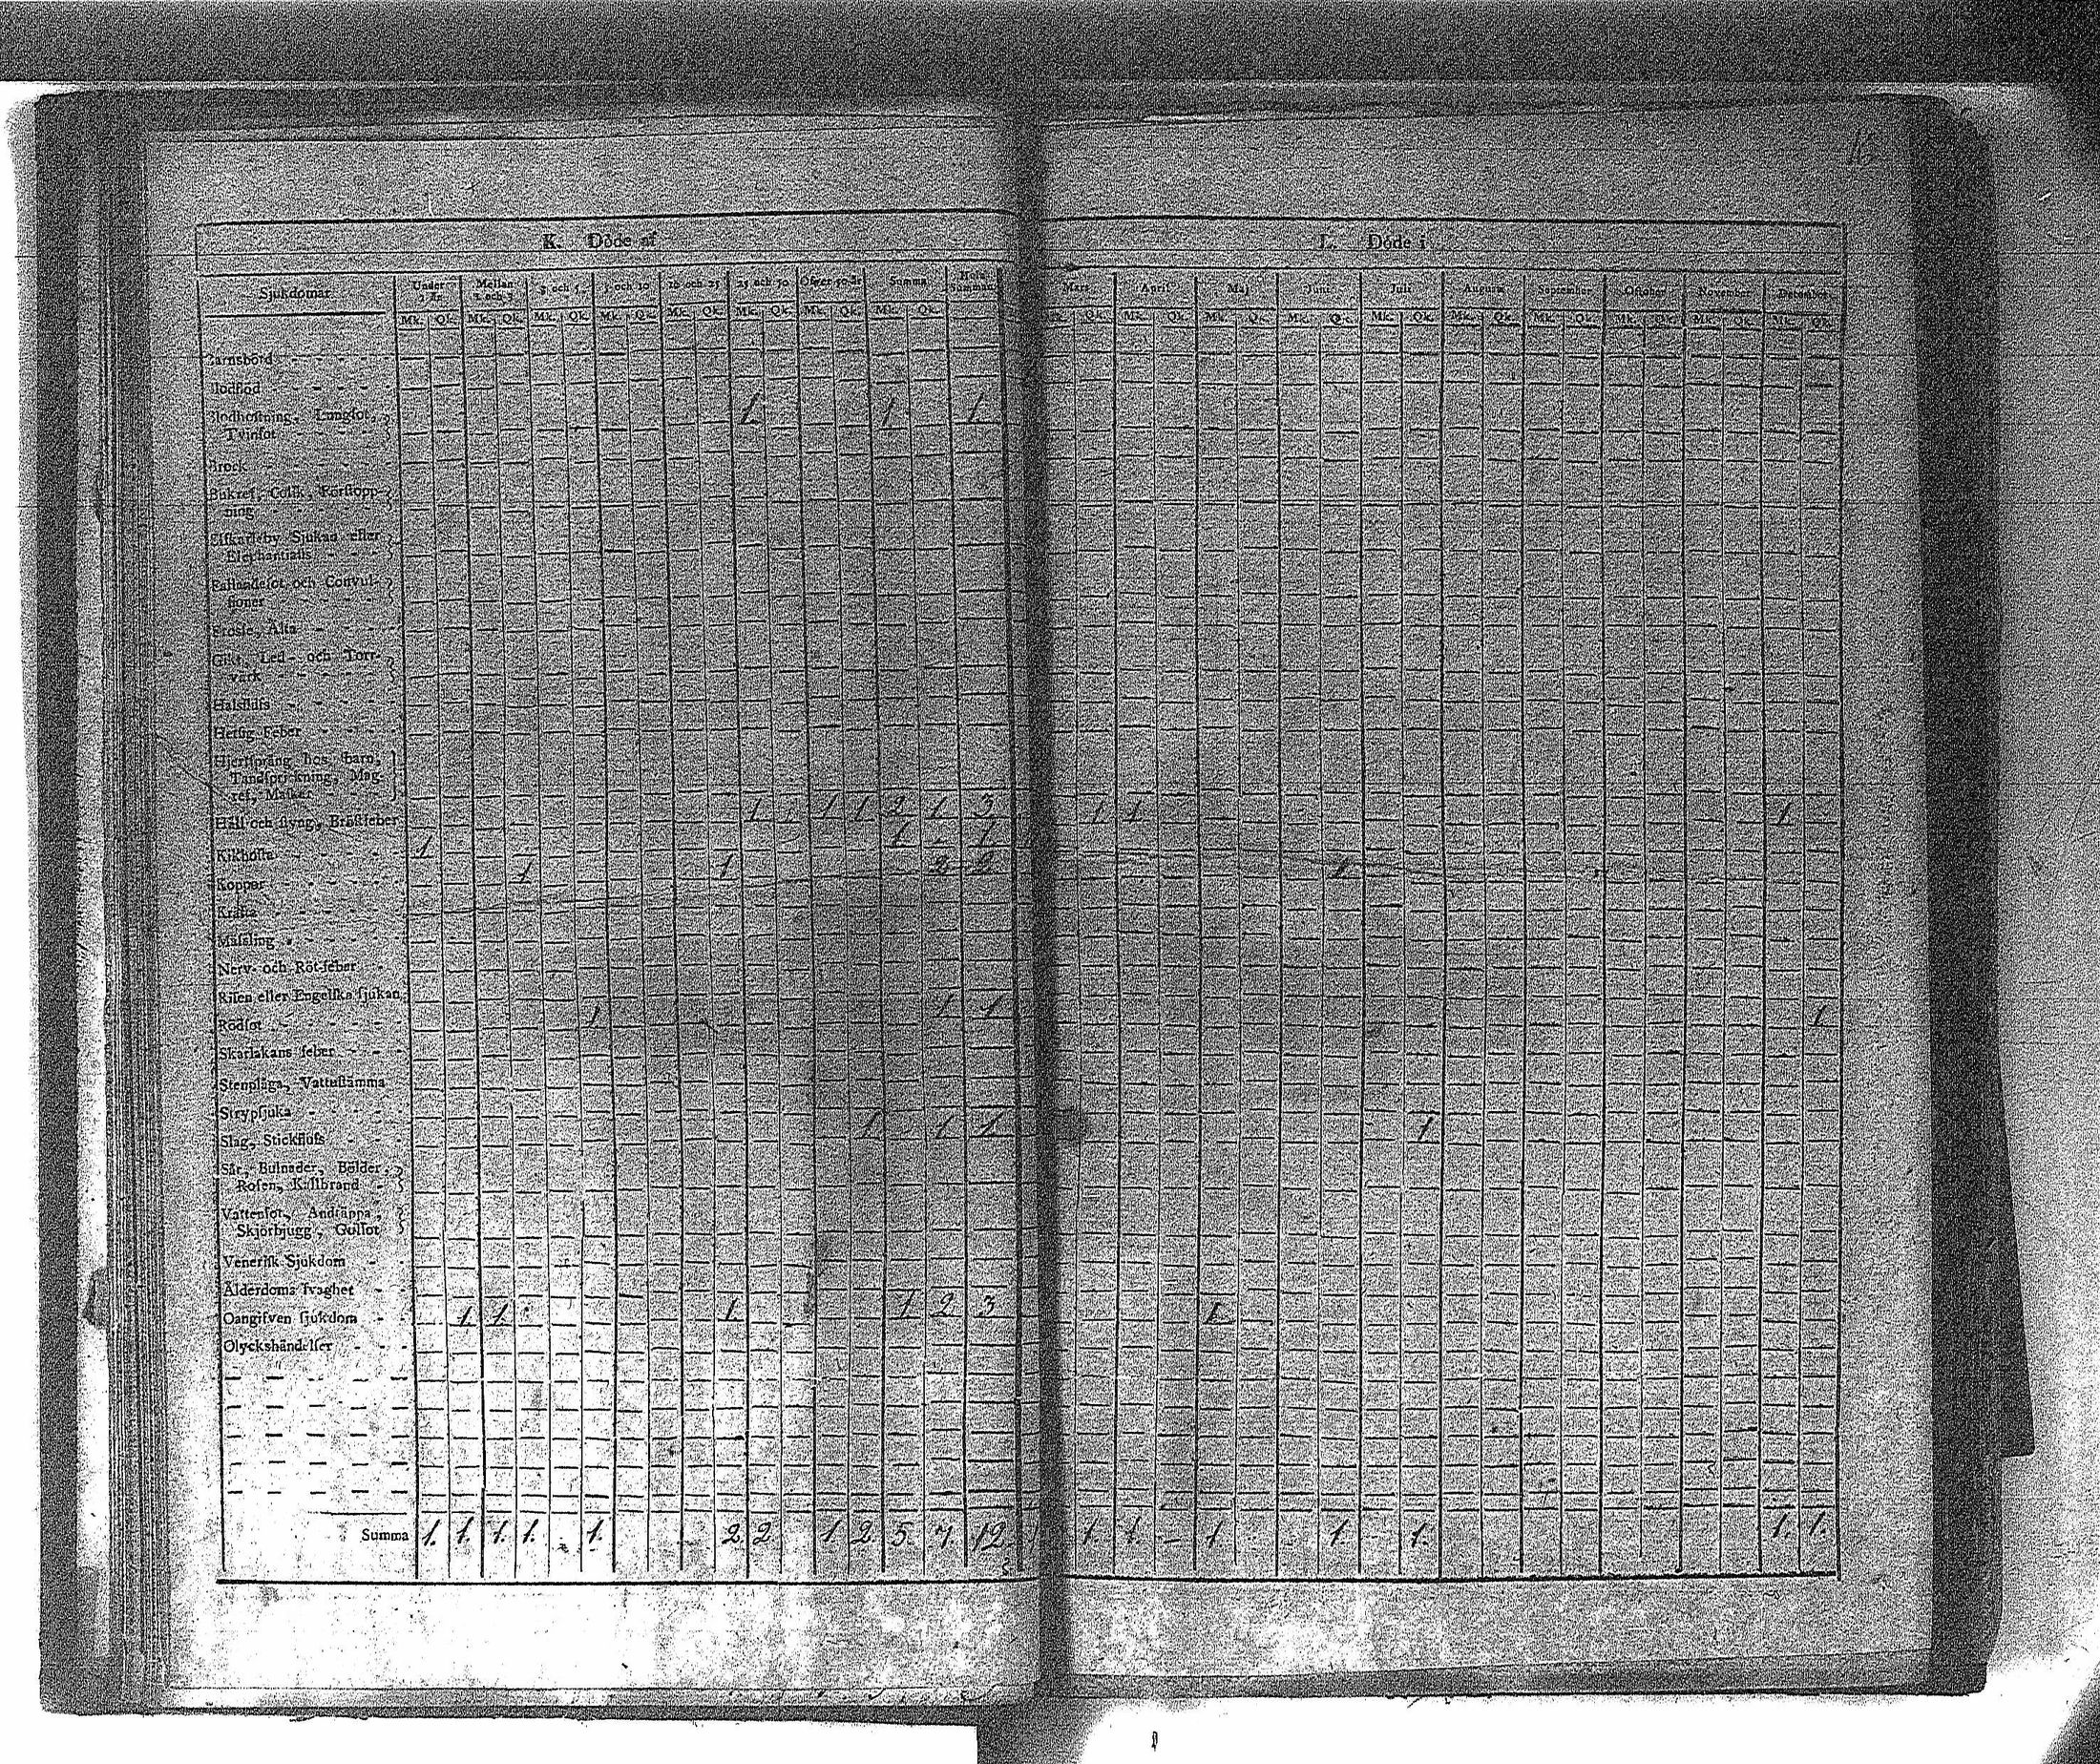 16
K. Döde af
L. Döde i
Sjukdomar Under 1 år. Mellan 1 och 3 3 och 5 5 och 10 10 och 25 25 och 50 Öfver 50 år Summa Hela Summan Mars April Maj Juni Juli Augusti September October November December
Mk. Qk. Mk. Qk. Mk. Qk. Mk. Qk. Mk. Qk. Mk. Qk. Mk. Qk. Mk. Qk. Qk. Mk. Qk. Mk. Qk. Mk. Qk. Mk. Qk. Mk. Qk. Mk. Qk. Mk. Qk. Mk. Qk. Mk. Qk.
Barnsbörd
Blodflod
Blodhostning, Lungsot, 1. 1 1
Tvinsot
Brock
Bukref, Colik, Förstopp-
ning
Elfkarleby Sjukan eller
Elephantiasis
Fallandesot och Convul-
sioner
Frossa, Älta
Gikt, Led- och Torr-
värk
Halsflufs
Hetsig Feber
Hjertsprång hos barn,
Tandsprickning, Mag-
ref, Maskar
Håll och styng, Bröstfeber 1 1 1 2 1 3 1 1 1
Kikhosta 1 1 1
Koppor 1 1 2 2 1
Kräfta
Mässling
Nerv- och Röt-feber
Risen eller Engelska sjukan
Rödsot 1 1 1 1
Skarlakans feber
Stenplåga, Vattustämma
Strypsjuka
Slag, Stickflufs 1 1 1 1
Sår, Bulnader, Bölder,
Rosen, Kallbrand
Vattensot, Andtäppa,
Skjörbjugg, Gulsot
Venerisk Sjukdom
Ålderdoms svaghet
Oangifven sjukdom 1 1. 1. 1 2 3 1.
Olyckshändelser
Summa 1. 1. 1. 1. 1. 2. 2. 1. 2. 5. 7. 12. 1. 1. 1 1. 1. 1. 1.